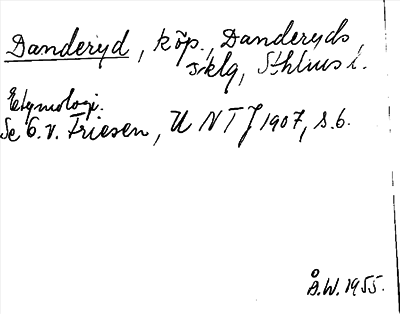 Danderyd, köp., Danderyds
sklg, Sthlms l.
Etymologi.
Se O. v. Friesen, UNTJ 1907, s. 6.
Å.W. 1955.